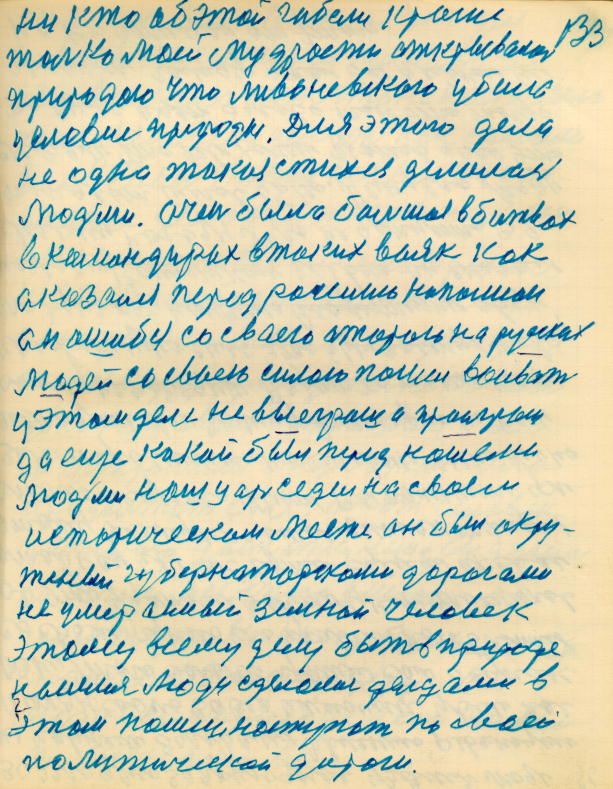 ни кто об этой гибели кроме 133
только моей мудрости открывался
природою что
условие природы. Для этого дела
не одна такая стихея делалася
людями. очен была болшая в битвах
в командирах в таких вояк как
оказался перед
он ошибся со своего на руских
людей со своею силою пошел воиват
у этом деле не выеграш а проиграш
да еще какой был перед нашеми
людями наш царь седел на своем
историческом месте. он был окру-
женый губернаторскоми дорогами
не умераемый земной человек
этому всему делу быть в природе
нашимя люди сделалис дедами в
этом пошли наступат по своей
политической дороги.